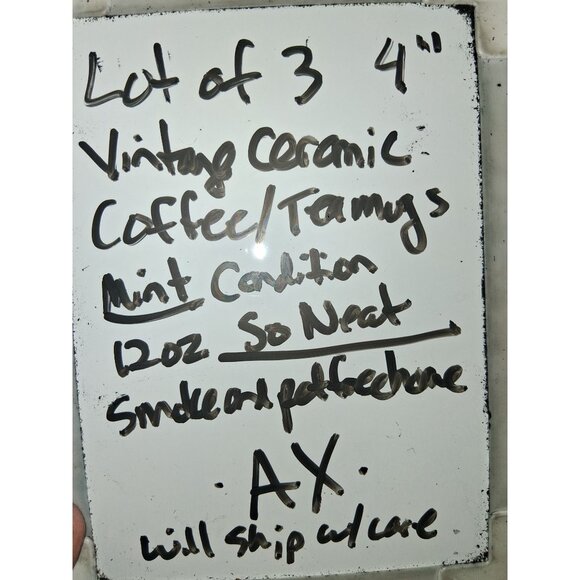 Lot of 3 4"
Vintage Ceramic
Coffee/Teamugs
Mint Condition
12oz So Neat
Smoke and pet free home
·AX·
will ship w/ care